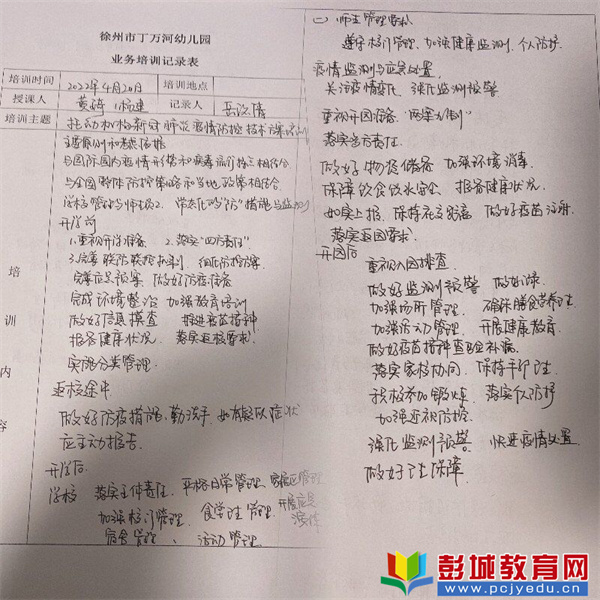 徐州市丁万河幼儿园
业务培训记录表
培训时间 2022年4月20日 培训地点
授课人 记录人
培训主题 托幼机构新冠肺炎疫情防控技术方案
主要原则和考虑依据
与国际国内疫情形势和病毒流行特点相结合
与全国整体防控策略和当地政策相结合
学校管理与师生 常态化"防"措施与监测
开学前
1.重视开学准备 2.落实"四方责任"
3.完善联防联控机制
完善应急预案 做好防疫准备
完成环境整治 加强教育培训
做好信息摸查 推进疫苗接种
报备健康状况 落实返校要求
实施分类管理
返校途中
做好防疫措施,勤洗手,如有疑似症状
应主动报告
开学后
学校 落实主体责任、严格日常管理、
加强校门管理、食堂 管理、
宿舍管理、活动管理
培
训
内
容
(一) 师生管理要求
遵守校门管理、加强健康监测、个人防护
疫情监测与应急处置
关注疫情变化、强化监测预警
重视开园准备
落实四方责任
做好物资储备 加强环境消毒
保障饮食饮水安全 报备健康状况
如实上报 做好疫苗
落实返园要求
开园后
重视入园排查
做好监测预警
加强场所管理 确保膳食营养
加强活动管理 开展健康教育
做好疫苗接种查验补漏
落实家校协同 保持手卫生
积极参加锻炼 落实个人防护
加强近视防控
强化监测预警 快速疫情处置
做好 保障
彭城教育网
www.pcjyedu.cn